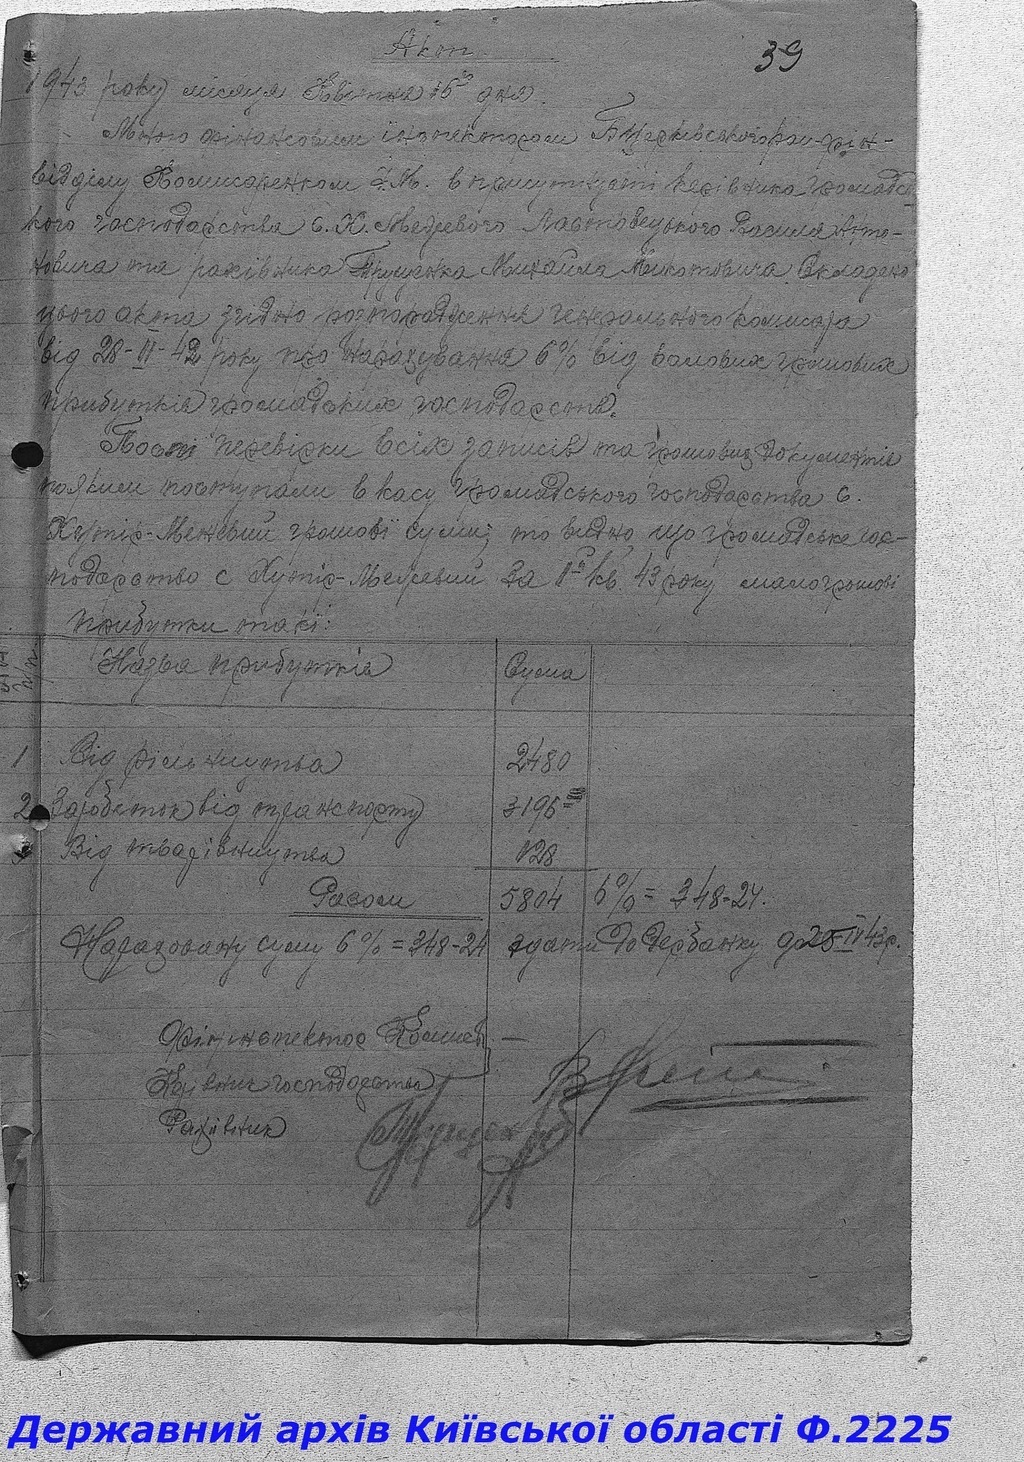 Акт
39
1943 року місяця Квітня 16 дня.
Мною фінансовим інспектором Б Церківського рай-фін-
відділу Комисаренком І.М. в присутності керівника громадсь
кого господарства с. Х. Межевого Ластовецького Василя Анто-
новича та рахівника Труценка Михайла складено
цього акта згідно розпорядження генерального комисара
від 28-III-42 року про нарахування 6% від валових грошових
прибутків громадських господарств.
Після перевірки всіх записів та грошових документів
по яким поступали в касу громадського господарства с.
Хутір-Межевий грошові суми; то видно що громадське гос-
подарство с Хутір-Межевий за I кв. 43 року мало грошові
прибутки такі:
п/п
Назва прибутків Сума
1 Від рільництва 2480
2 Заробіток від транспорту 3196
3 Від тварівництва 128
Разом 5804 6% = 348-24.
Нараховану суму 6% = 348-24 здати до держбанку до 43р.
Фінінспектор Комисар
Керівник господарства
Рахівник
Державний архів Київської області Ф.2225